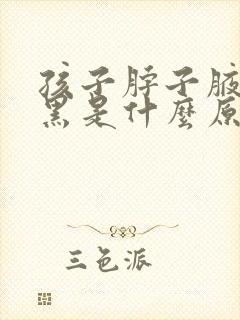 孩子脖子腋
黑是什麼原
三色派